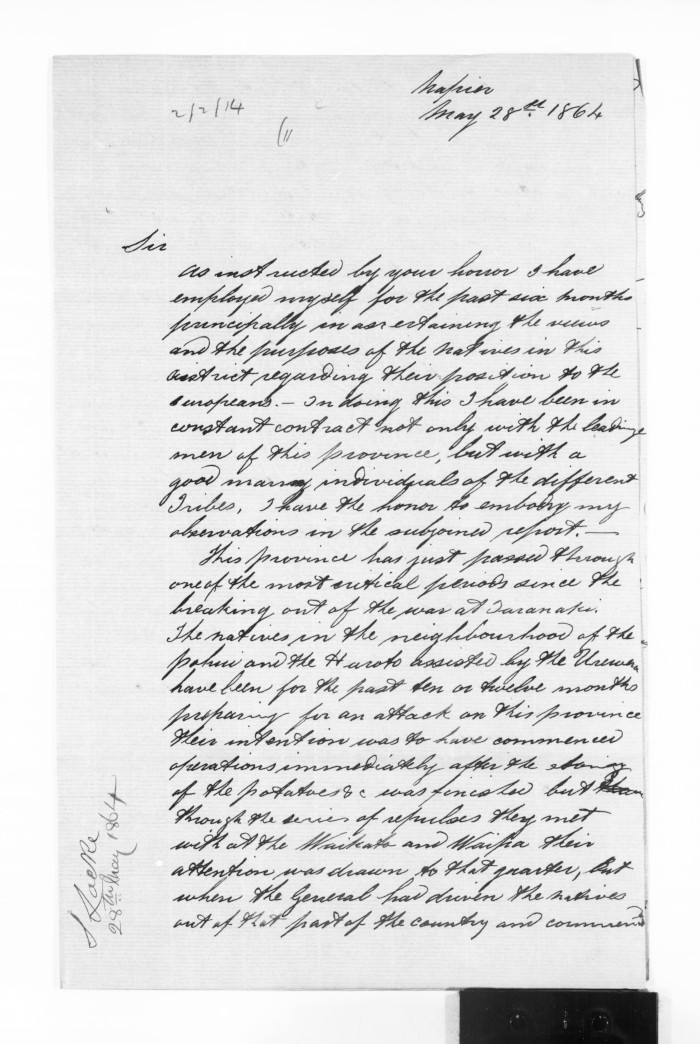 Napier
May 28th 1864
2/2/14
Sir
As instructed by your honor I have
employed myself for the past six months
principally in ascertaining the views
and the purposes of the natives in this
district regarding their position to the
Europeans. — In doing this I have been in
constant contract not only with the leading
men of this province, but with a
good many individuals of the different
Tribes, I have the honor to embody my
observations in the subjoined report. —
This province has just passed through
one of the most critical periods since the
breaking out of the war at Taranaki.
The natives in the neighbourhood of the
pohui and the Haroto assisted by the Urewera
have been for the past ten or twelve months
preparing for an attack on this province
their intention was to have commenced
operations immediately after the
of the potatoes &c was finished but
through the series of repulses they met
with at the Waikato and Waipa their
attention was drawn to that quarter, But
when the General had driven the natives
out of that part of the country and commenced
S Locke
28th May 1864